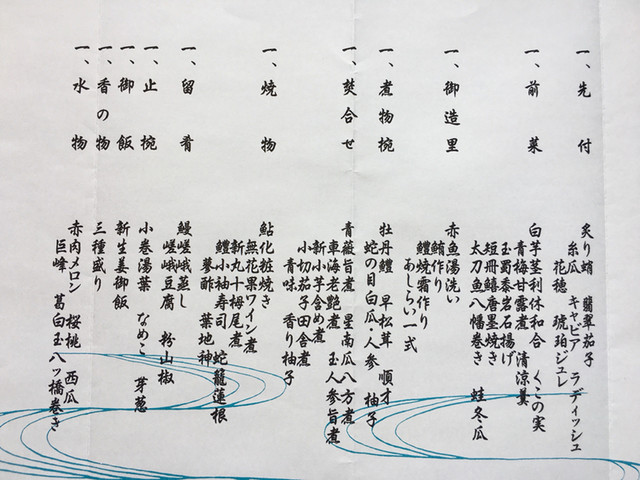 一、先付
炙り蛸 翡翠茄子 ラディッシュ
糸瓜 キャビア
花穂 琥珀ジュレ
一、前菜
白芋茎利休和合 くこの実
青梅甘露煮 清涼羹
玉蜀黍岩石揚げ
短冊鱚唐墨焼き
太刀魚八幡巻き 蛙冬瓜
一、御造里
赤魚湯洗い
鮪作り
鱧焼霜作り
あしらい一式
一、煮物椀
牡丹鱧 早松茸 順才
蛇の目白瓜・人参 柚子
一、焚合せ
青薇旨煮 星南瓜八方煮
車海老艶煮 玉人参旨煮
新小芋含め煮
小切茄子田舎煮
青味 香り柚子
一、焼物
鮎化粧焼き
無花果ワイン煮
新丸十梔尾煮 蛇籠蓮根
鱧小袖寿司
蓼酢 葉地神
一、留肴
鰻嵯峨蒸し
嵯峨豆腐 粉山椒
一、止椀
小巻湯葉 なめこ 芽葱
一、御飯
新生姜御飯
一、香の物
三種盛り
一、水物
赤肉メロン 桜桃 西瓜
巨峰 葛白玉八ッ橋巻き